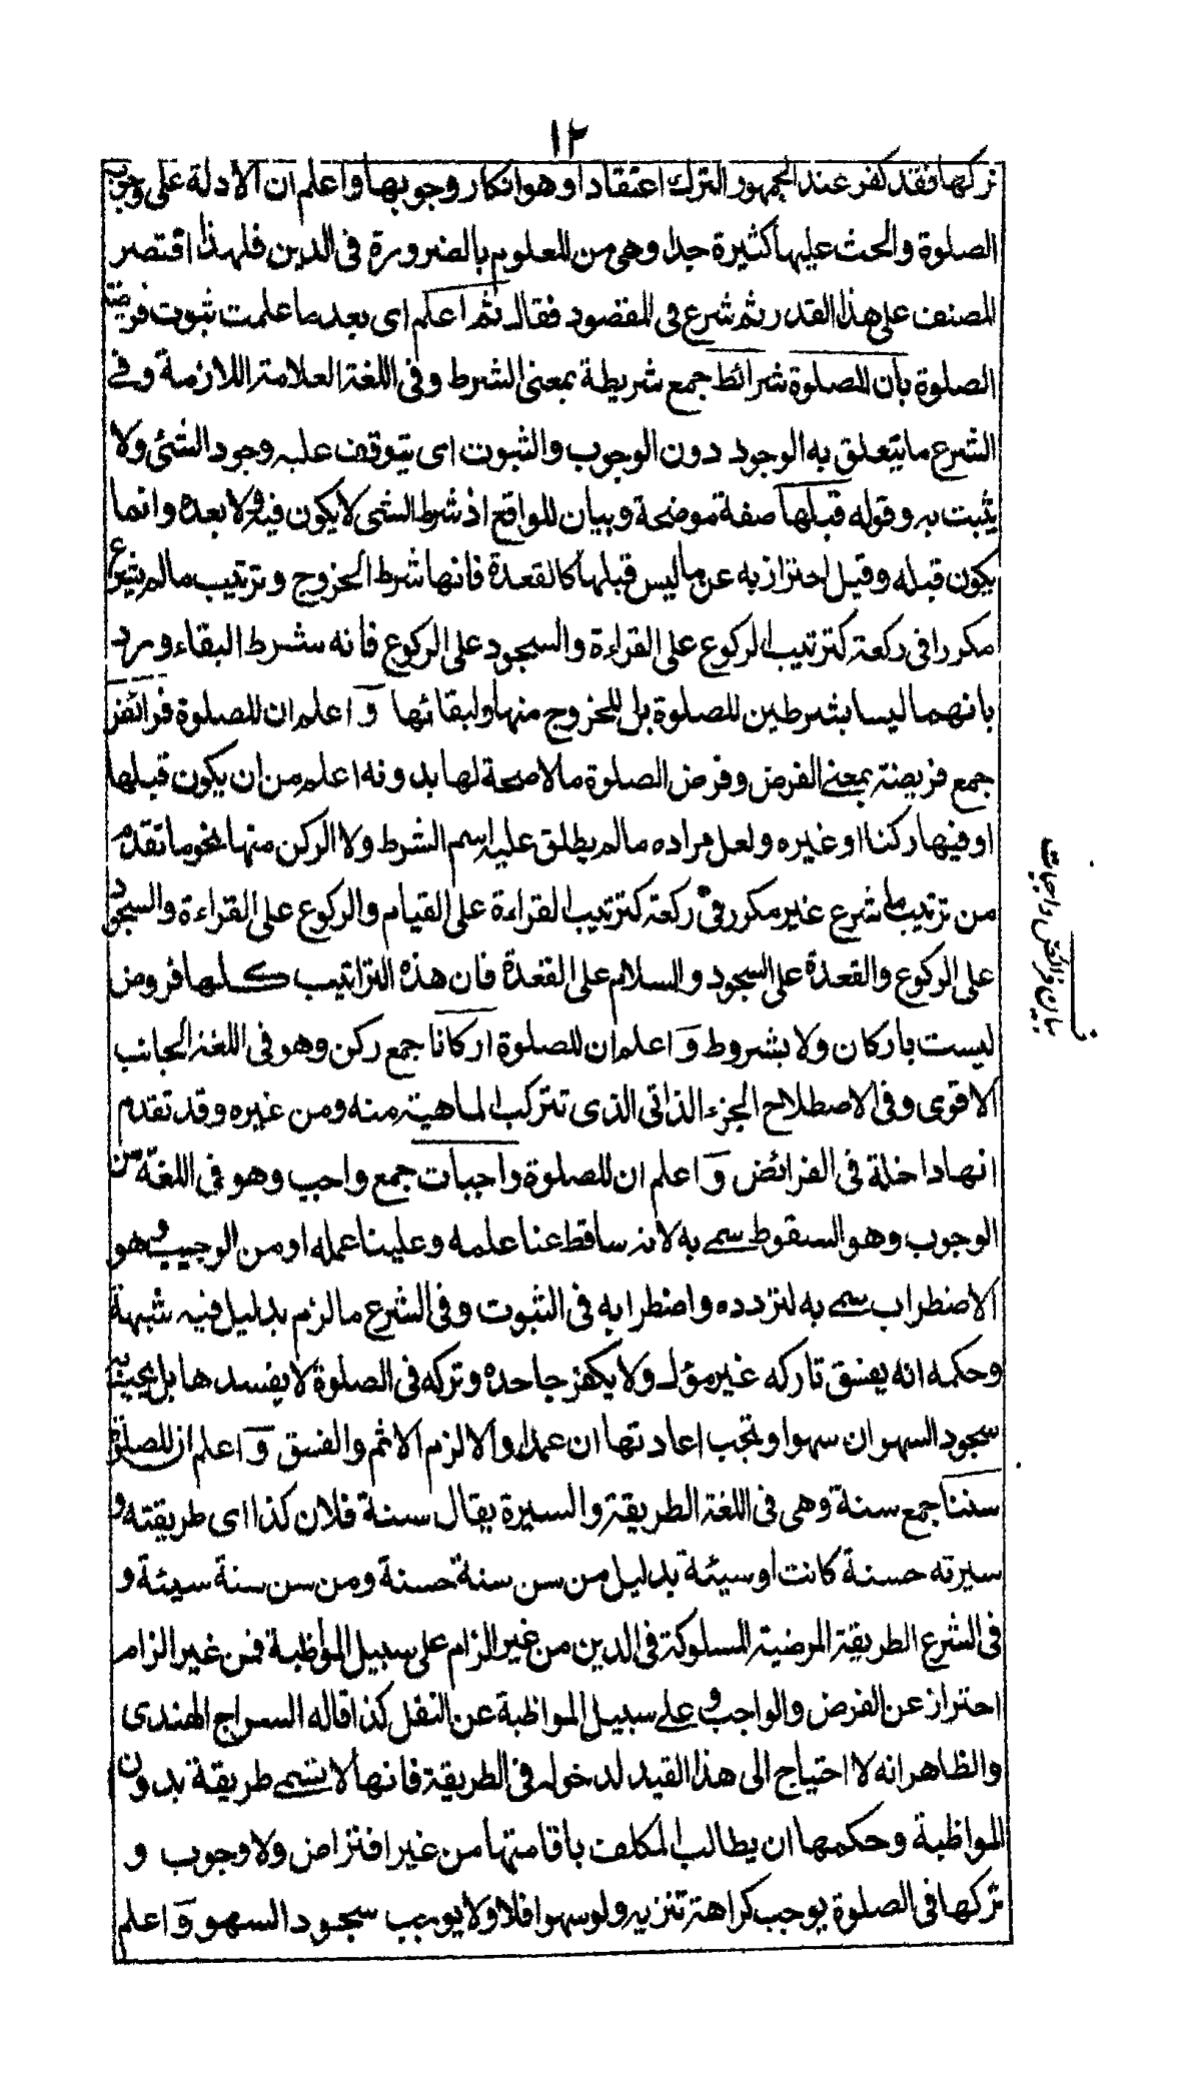 ١٢
تركها فقد كفر عند الجمهور الترك اعتقادا وهو انكار وجوبها واعلم ان الادلة على وجوب
الصلوة والحث عليها كثيرة جدا وهى من المعلوم بالضرورة فى الدين فلهذا اقتصر
المصنف على هذا القدر ثم شرع فى المقصود فقال ثم اعلم اى بعد ما علمت ثبوت فرضية
الصلوة بأن للصلوة شرائط جمع شريطة بمعنى الشرط وفى اللغة العلامة اللازمة وفى
الشرع ما يتعلق به الوجود دون الوجوب والثبوت اى يتوقف عليه وجود الشئ ولا
يثبت به وقوله قبلها صفة موضحة وبيان للواقع اذ شرط الشئ لا يكون فيه ولا بعده وانما
يكون قبله وقيل احتراز به عن ما ليس قبلها كالقعدة فانها شرط الخروج وترتيب ما لم يشرع
مكررا فى ركعة كترتيب الركوع على القراءة والسجود على الركوع فأنه شرط البقاء ورد
بانهما ليسا بشرطين للصلوة بل للخروج منها ولبقائها وَاعلم ان للصلوة فرائض
جمع فريضة بمعنى الفرض وفرض الصلوة ما لا صحة لها بدونه اعلم من ان يكون قبلها
او فيها ركنا او غيره ولعل مراده ما لم يطلق عليه اسم الشرط ولا الركن منها نحو ما تقدم
من ترتيب ما شرع غير مكرر فى ركعة كترتيب القراءة على القيام والركوع على القراءة والسجود
على الركوع والقعدة على السجود والسلام على القعدة فان هذه التراتيب كلها فروض
ليست باركان ولا بشروط وَاعلم ان للصلوة اركانا جمع ركن وهو فى اللغة الجانب
الاقوى وفى الاصطلاح الجزء الذاتى الذى تتركب الماهية منه ومن غيره وقد تقدم
انها داخلة فى الفرائض وَاعلم ان للصلوة واجبات جمع واجب وهو فى اللغة من
الوجوب وهو السقوط سمى به لانه ساقط عنا علمه وعلينا عمله او من الوجيب وهو
الاضطراب سمى به لتردده واضطرابه فى الثبوت وفى الشرع ما لزم بدليل فيه شبهة
وحكمه انه يفسق تاركه غير مؤل ولا يكفر جاحده وتركه فى الصلوة لا يفسدها بل يجب به
سجود السهو ان سهوا وتجب اعادتها ان عمدا والا لزم الاثم والفسق وَاعلم ان للصلوة
سننا جمع سنة وهى فى اللغة الطريقة والسيرة يقال سنة فلان كذا اى طريقته و
سيرته حسنة كانت او سيئة بدليل من سن سنة حسنة ومن سن سنة سيئة و
فى الشرع الطريقة المرضية المسلوكة فى الدين من غير الزام على سبيل المواظبة فمن غير الزام
احتراز عن الفرض والواجب وعلى سبيل المواظبة عن النفل كذا قاله السراج الهندى
والظاهر انه لا احتياج الى هذا القيد لدخوله فى الطريقة فانها لا تسمى طريقة بدون
المواظبة وحكمها ان يطالب المكلف باقامتها من غير افتراض ولا وجوب و
تركها فى الصلوة يوجب كراهة تنزيه ولو سهوا فلا ولا يوجب سجود السهو وَاعلم
بيان فرائض واجبات